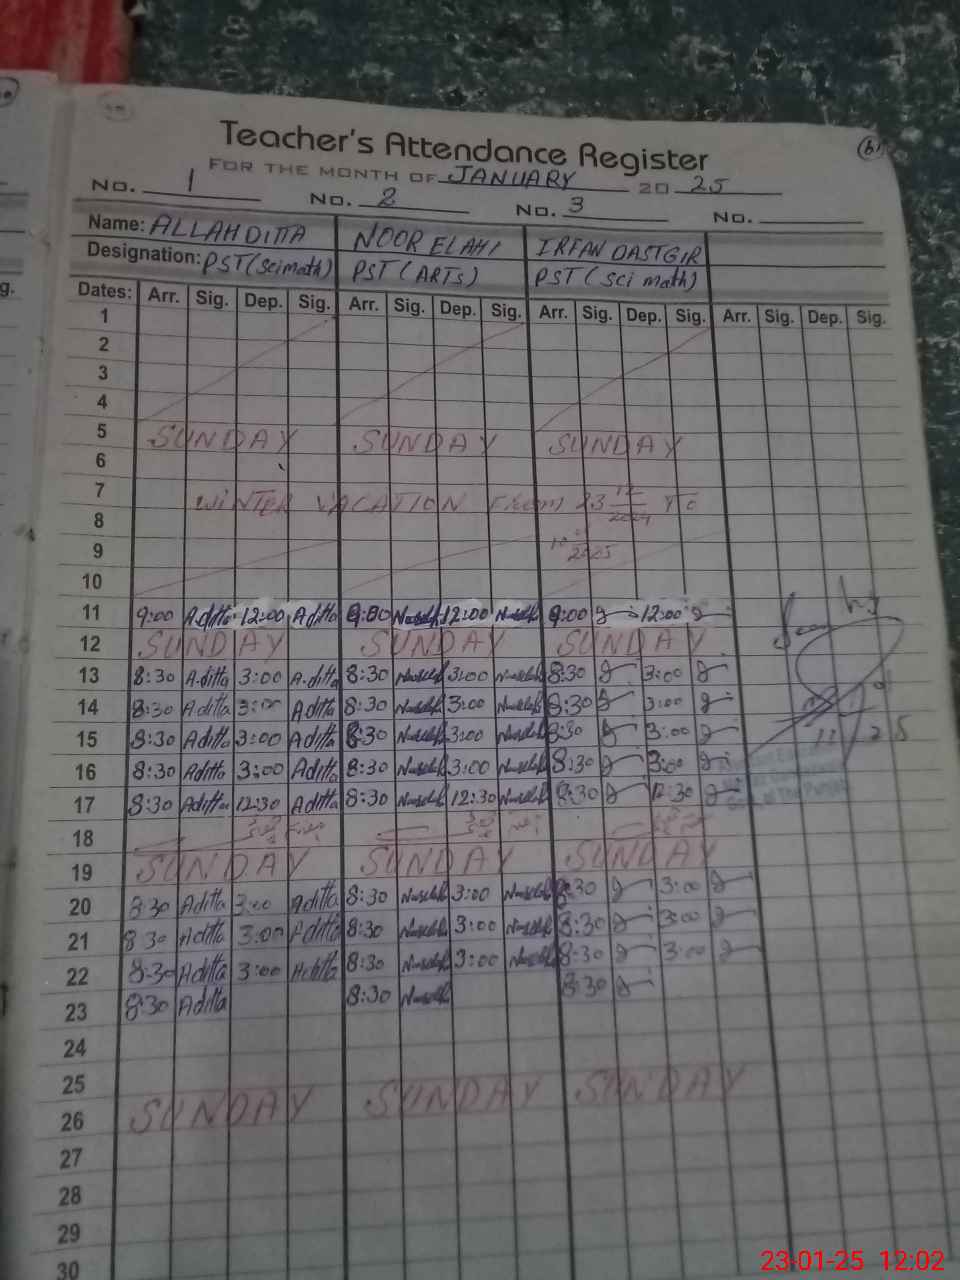 Teacher's Attendance Register
FOR THE MONTH OF JANUARY 20 25
No. 1 No. 2 No. 3 No.
Name: ALLAH DITTA NOOR ELAHI IRFAN DASTGIR
Designation: PST (Sci math) PST (ARTS) PST (Sci math)
Dates: Arr. Sig. Dep. Sig. Arr. Sig. Dep. Sig. Arr. Sig. Dep. Sig. Arr. Sig. Dep. Sig.
1
2
3
4
5 SUNDAY SUNDAY SUNDAY
6
7 WINTER VACATION FROM 23 12 2024 To
8
9 2025
10
11 9:00 A.ditta 12:00 Aditta 9:00 12:00 9:00 12:00
12 SUNDAY SUNDAY SUNDAY
13 8:30 A.ditta 3:00 A.ditta 8:30 3:00 8:30 3:00
14 8:30 Aditta 3:00 Aditta 8:30 3:00 8:30 3:00
15 8:30 Aditta 3:00 Aditta 8:30 3:00 8:30 3:00
16 8:30 Aditta 3:00 Aditta 8:30 3:00 8:30 3:00
17 8:30 Aditta 12:30 Aditta 8:30 12:30 8:30 12:30
18
19 SUNDAY SUNDAY SUNDAY
20 8:30 Aditta 3:00 Aditta 8:30 3:00 8:30 3:00
21 8:30 Aditta 3:00 Aditta 8:30 3:00 8:30 3:00
22 8:30 Aditta 3:00 Aditta 8:30 3:00 8:30 3:00
23 8:30 Aditta 8:30 8:30
24
25
26 SUNDAY SUNDAY SUNDAY
27
28
29
30
23-01-25 12:02